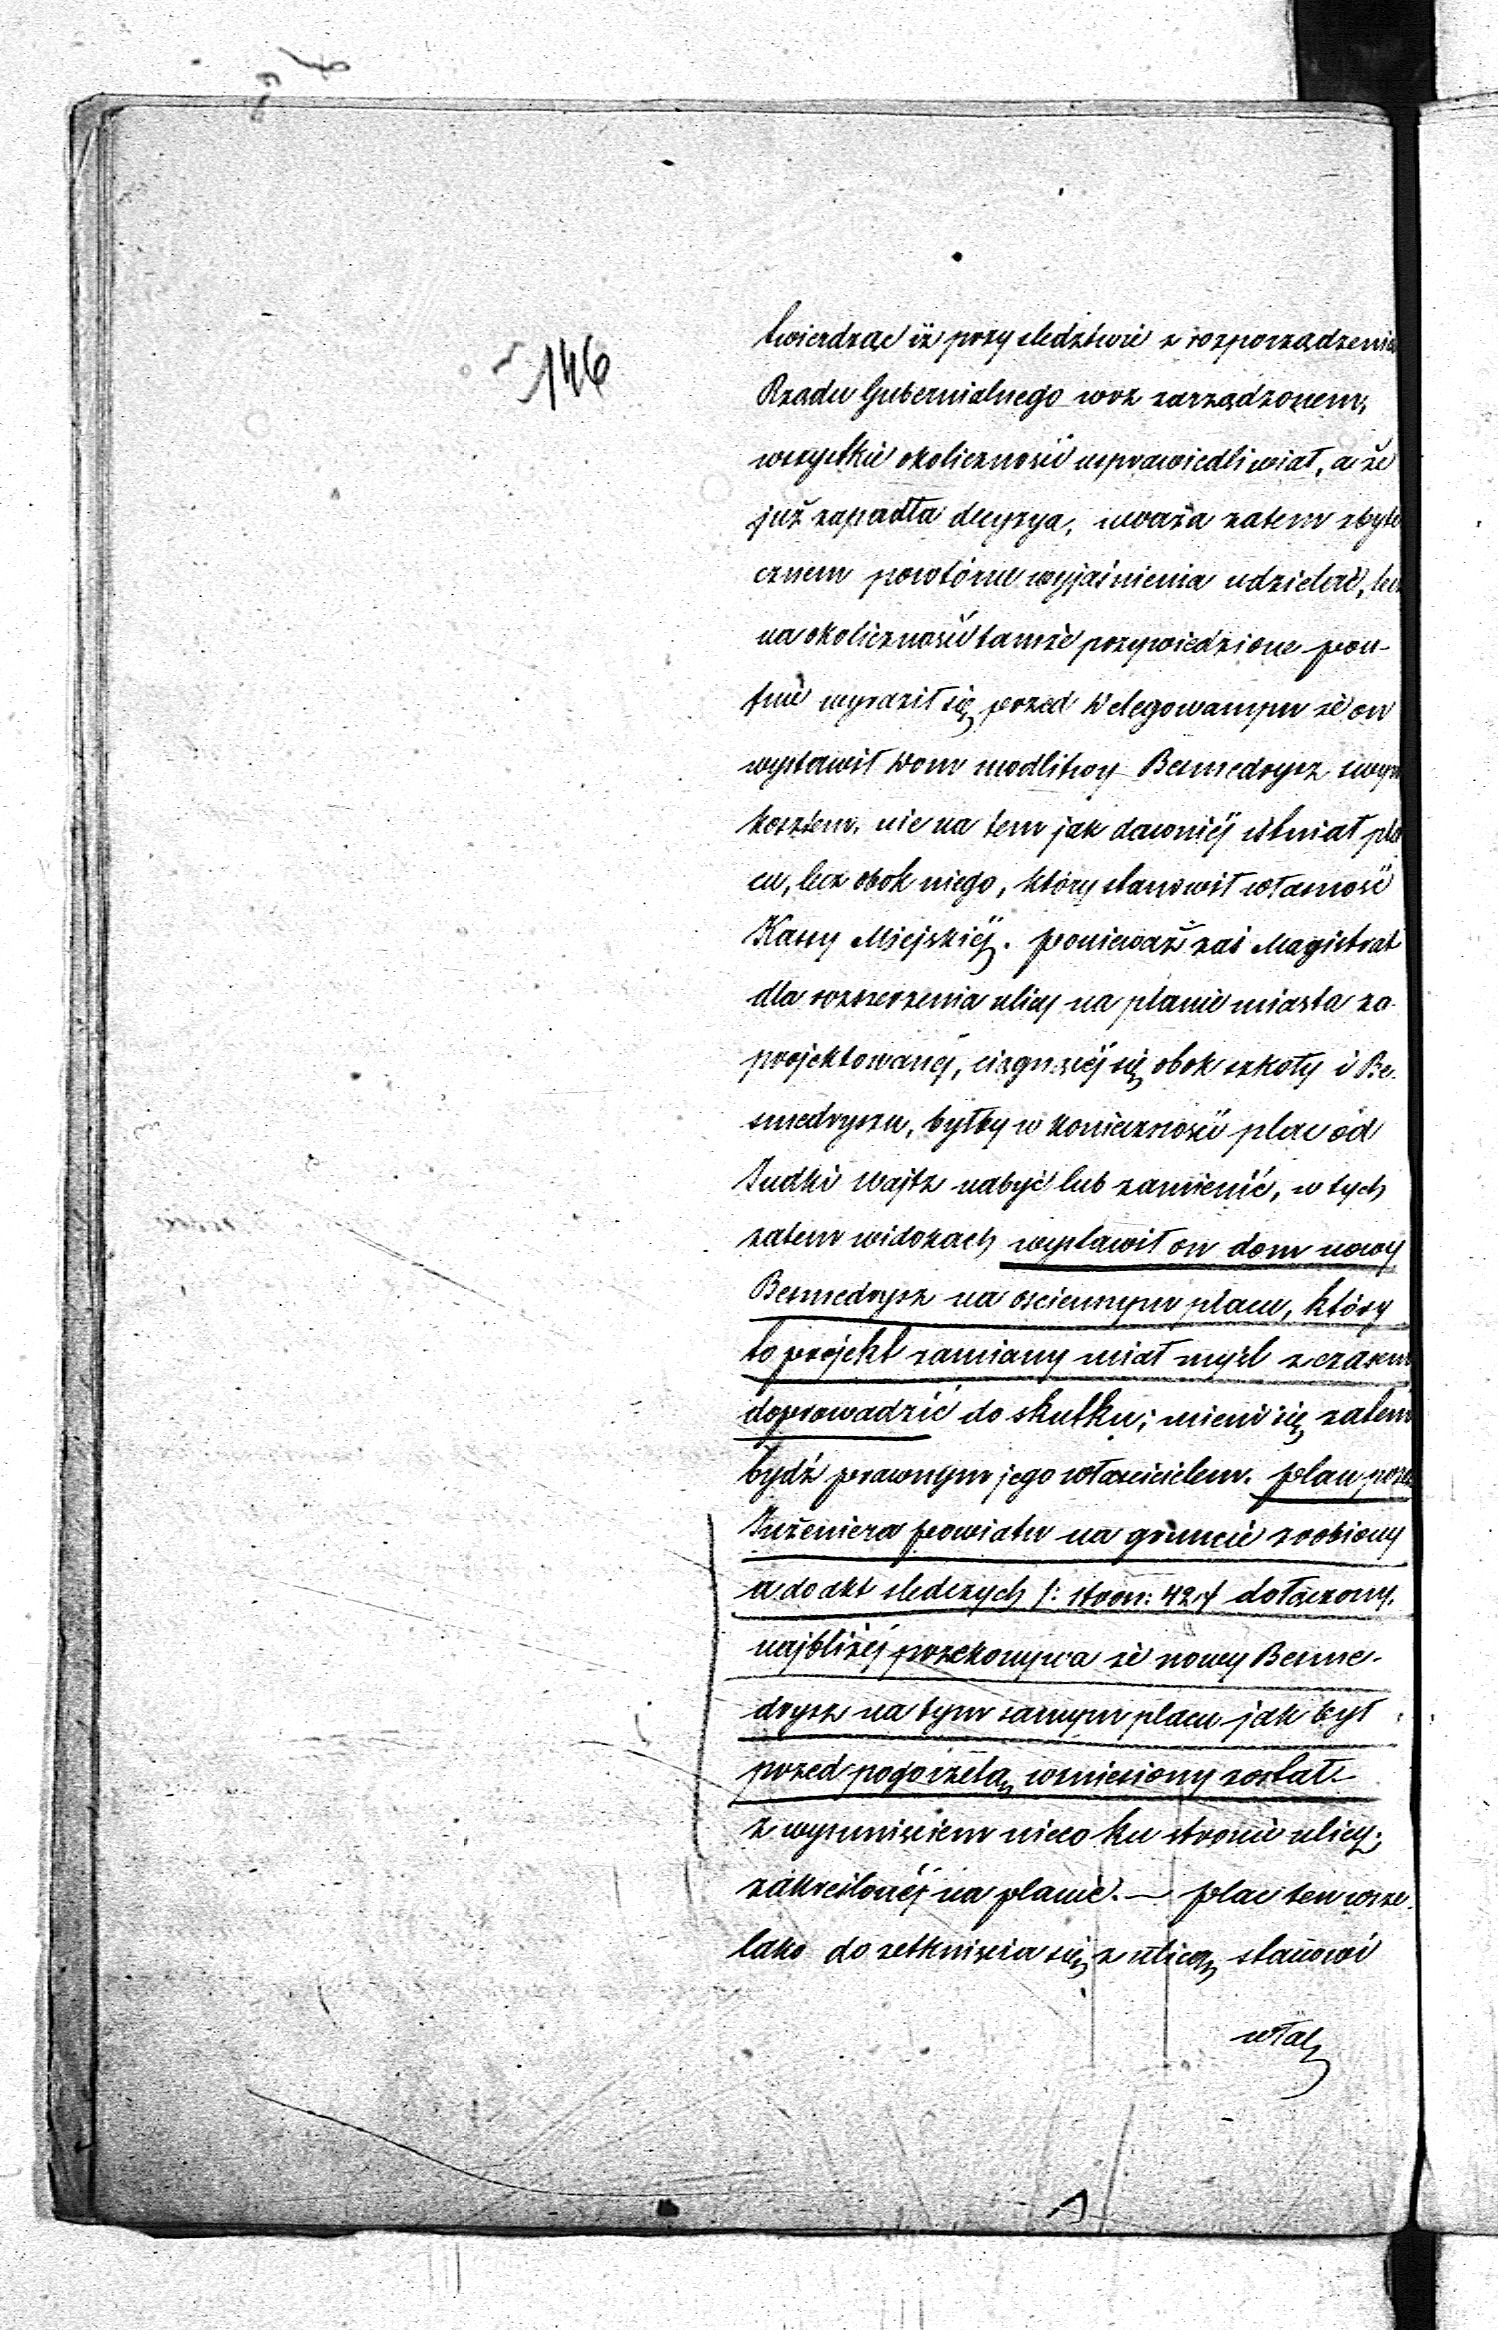 146
twierdząc iż przy śledztwie z rozporządzenia
Rządu Gubernialnego woz zarządzonem,
wszystkie okoliczności usprawiedliwiał, a że
już zapadła decyzya, uważa zatem zbyte
cznem powtórne wyjaśnienia udzielać, lecz
na okoliczności tamże przywiedzione pou-
fnie wyraził się przed Delegowanym że on
wystawił Dom modlitwy Besmedrysz swym
kosztem, nie na tem jak dawniéj istniał pla
cu, lecz obok niego, który stanowił własność
Kassy Miejskiéj. ponieważ zaś Magistrat
dla rozszerzenia ulicy na planie miasta za
projektowanéj, ciągnącéj się obok szkoły i Be-
smedrysza, byłby w konieczności plac od
Judki Wajtz nabyć lub zamienić, w tych
zatem widokach wystawił on dom nowy
Besmedrysz na ościennym placu, który
to projekt zamiany miał myśl z czasem
doprowadzić do skutku; mieni się zatem
bydź prawnym jego właścicielem. plan przez
Inżeniera powiatu na gruncie zrobiony
a do akt śledczych /: stron: 42 :/ dołączony,
najbliżéj przekonywa że nowy Besme-
drysz na tym samym placu jak był
przed pogorzelą wzniesiony został
z wysunięciem nieco ku stronie ulicy,
zakreślonéj na planie. — plac ten wsze-
lako do zetknięcia się z ulicą stanowi
włas